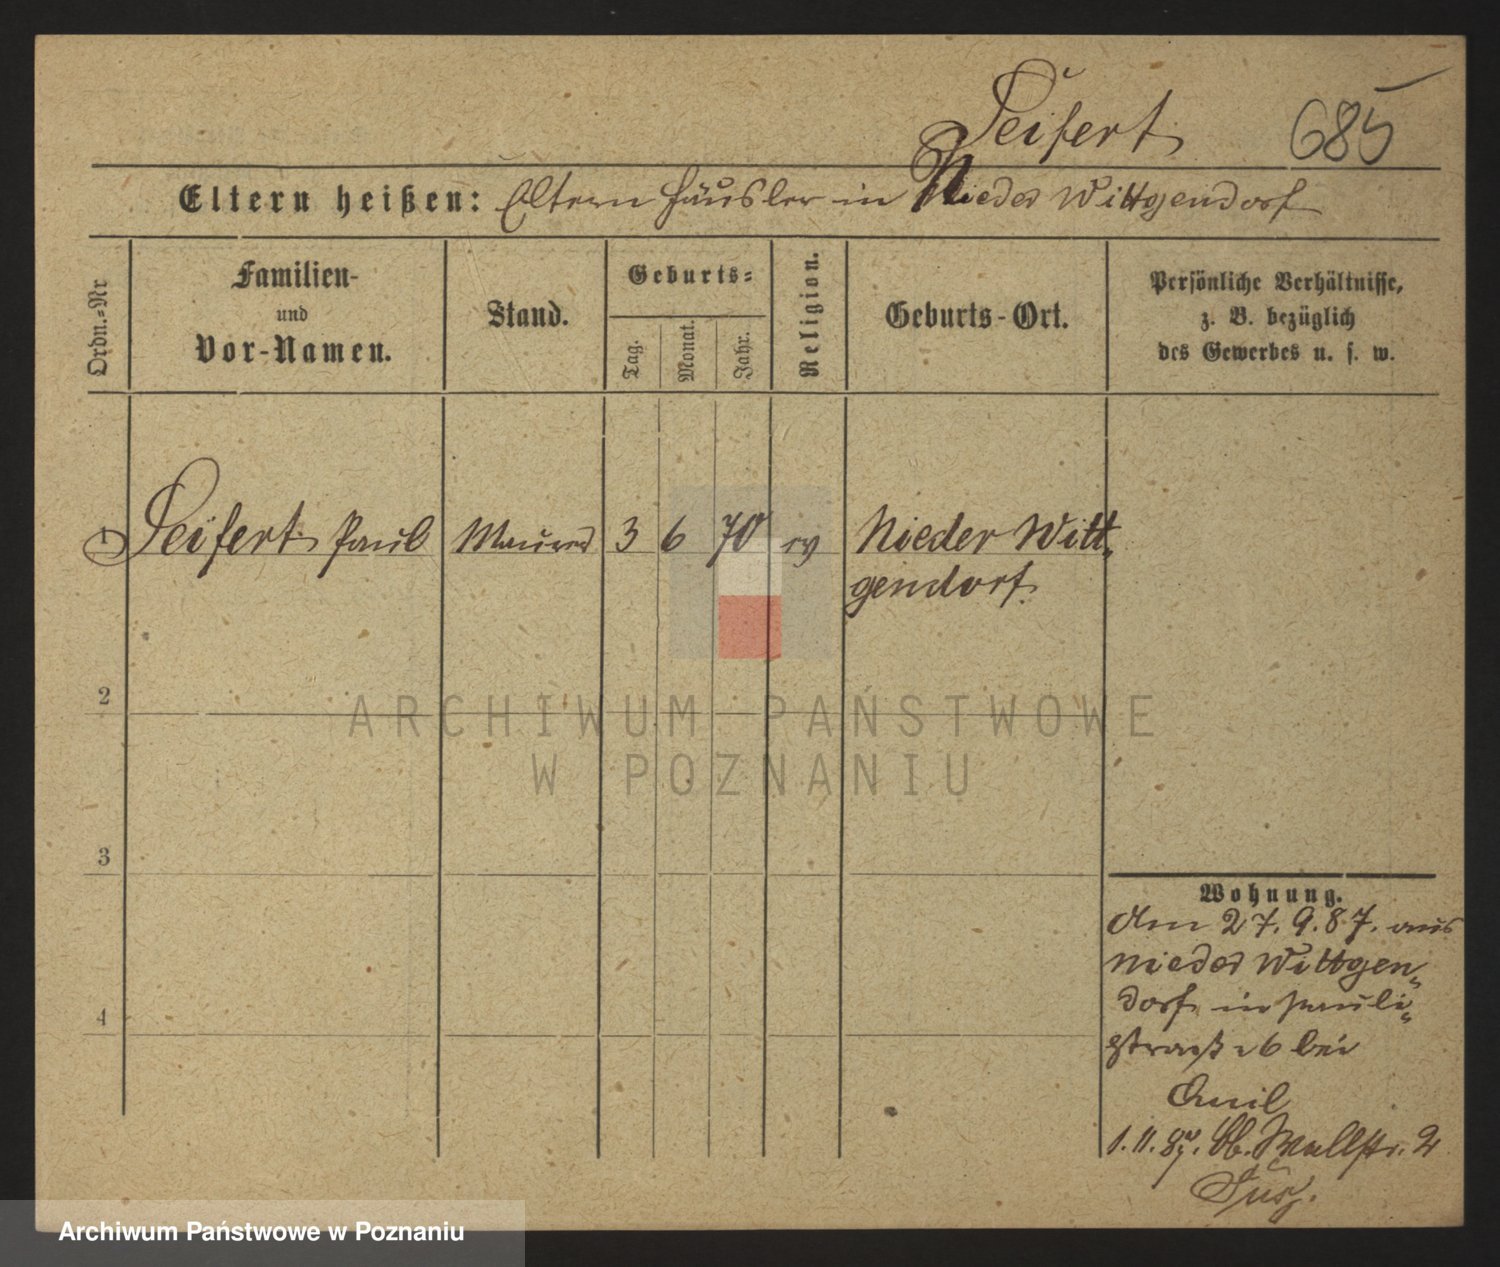 Seifert 685
Eltern heißen: Eltern Häusler in Nieder Wittgendorf
Ordn.-Nr
Familien-
und
Vor-Namen.
Stand.
Geburts-
Tag.
Monat.
Jahr.
Religion.
Geburts-Ort.
Persönliche Verhältnisse,
z. B. bezüglich
des Gewerbes u. s. w.
1 Seifert Paul Maurer 3 6 70 ev Nieder Witt-
gendorf
2
ARCHIWUM PAŃSTWOWE
W POZNANIU
3
Wohnung.
Am 27. 9. 87. aus
Nieder Wittgen-
dorf in Pauli-
straße 6 bei
4
1. 11. 87. Wallstr. 2
Archiwum Państwowe w Poznaniu